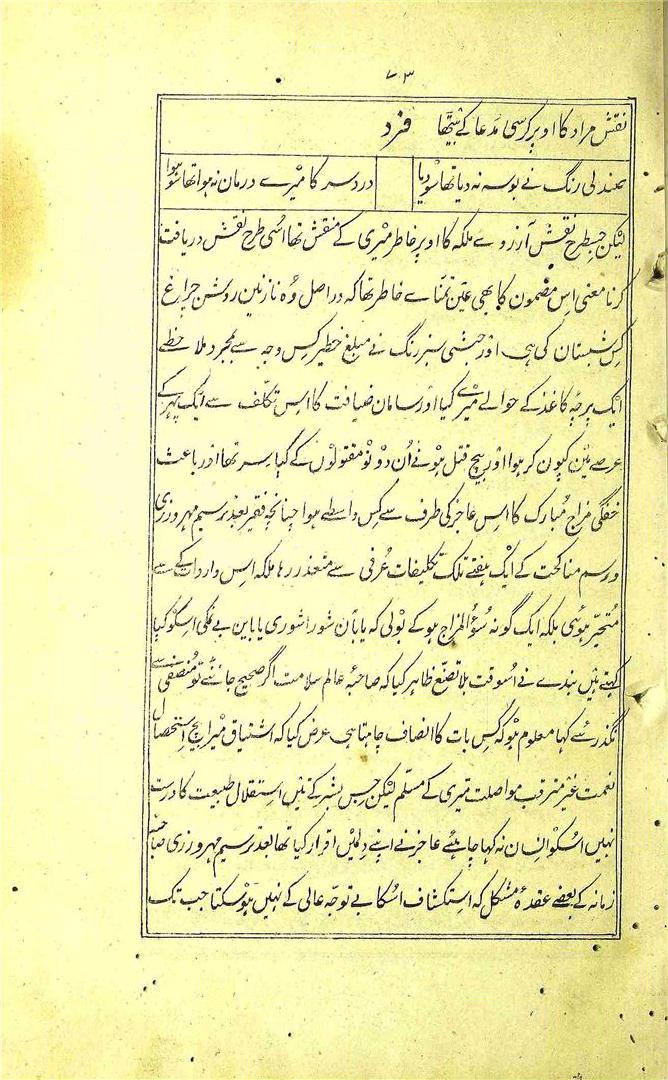 ٧٣
نقش مراد کا اوپر کرسی مدعا کے بیٹھا فرد
صندلی رنگ نے بوسہ نہ دیا تھا سو دیا
درد سر کا میرے درمان نہ ہوا تھا سو ہوا
لیکن جسطرح نقش آرزوے ملکہ کا اوپر خاطر میری کے منقش تھا اُسی طرح نقش دریافت
کرنا معنی اس مضمون کا بھی عین تمناے خاطر تھا کہ دراصل وُہ نازنین روشن چراغ
کِس شبستان کی ہی اور حبشی سبز رنگ نے مبلغ خطیر کس وجہ سے بمجرد ملاحظے
ایک پرچۂ کاغذ کے حوالے میرے کیا اور سامان ضیافت کا اِس تکلف سے ایک پہر کے
عرصے میں کیون کر ہوا اور بیچ قتل ہونے اُن دونو مقتولوں کے کیا سِر تھا اور باعث
خفگی مزاج مُبارک کا اِس عاجز کی طرف سے کِس واسطے ہوا چنانچہ فقیر بعد ترسیم مہرورزی
و رسم مناکحت کے ایک ہفتے تلک تکلیفات عُرفی سے متعذر رہا ملکہ اس واردات کے سے
مُتحیّر ہوئی بلکہ ایک گونہ سُوءُالمزاج ہو کے بولی کہ یا بآن شوراشوری یا باین بے نمکی اسکو کیا
کہتے ہیں بندے نے اُسوقت بلا تصنع ظاہر کیا کہ صاحبۂ عالم سلامت اگر صحیح جانئے تو مُنصفی سے
نگذریے کہا معلوم ہو کہ کِس بات کا انصاف چاہتا ہی عرض کیا کہ اشتیاق میرا بیچ استحصال
نعمت غیر مترقب مواصلت تیری کے مسلّم لیکن جس بشر کے تئیں استقلال طبیعت کا درست
نہیں اسکو انسان نہ کہا چاہئے عاجز نے اپنے دلمیں اقرار کیا تھا بعد ترسیم مہرورزی صاحبۂ
زمانہ کے بعضے عقدۂ مشکل کہ استکشاف اُسکا بے توجّہ عالی کے نہیں ہو سکتا جب تک